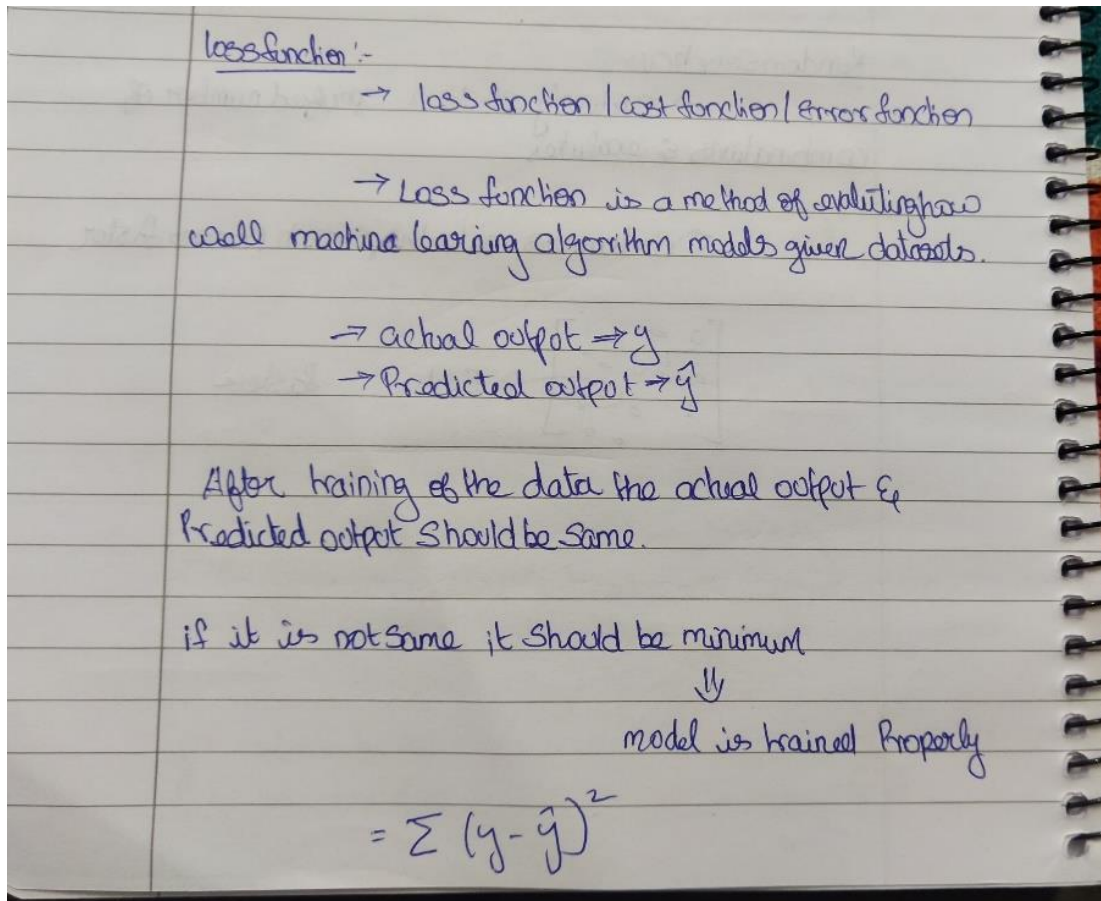 loss function :-
→ loss function / cost function / error function
→ Loss function is a method of evaluting how
well machine learning algorithm models given datasets.
→ actual output ⇒ y
→ Predicted output → ŷ
After training of the data the actual output &
Predicted output Should be Same.
if it is not Same it Should be minimum
⇓
model is trained Properly
= Σ (y - ŷ)²